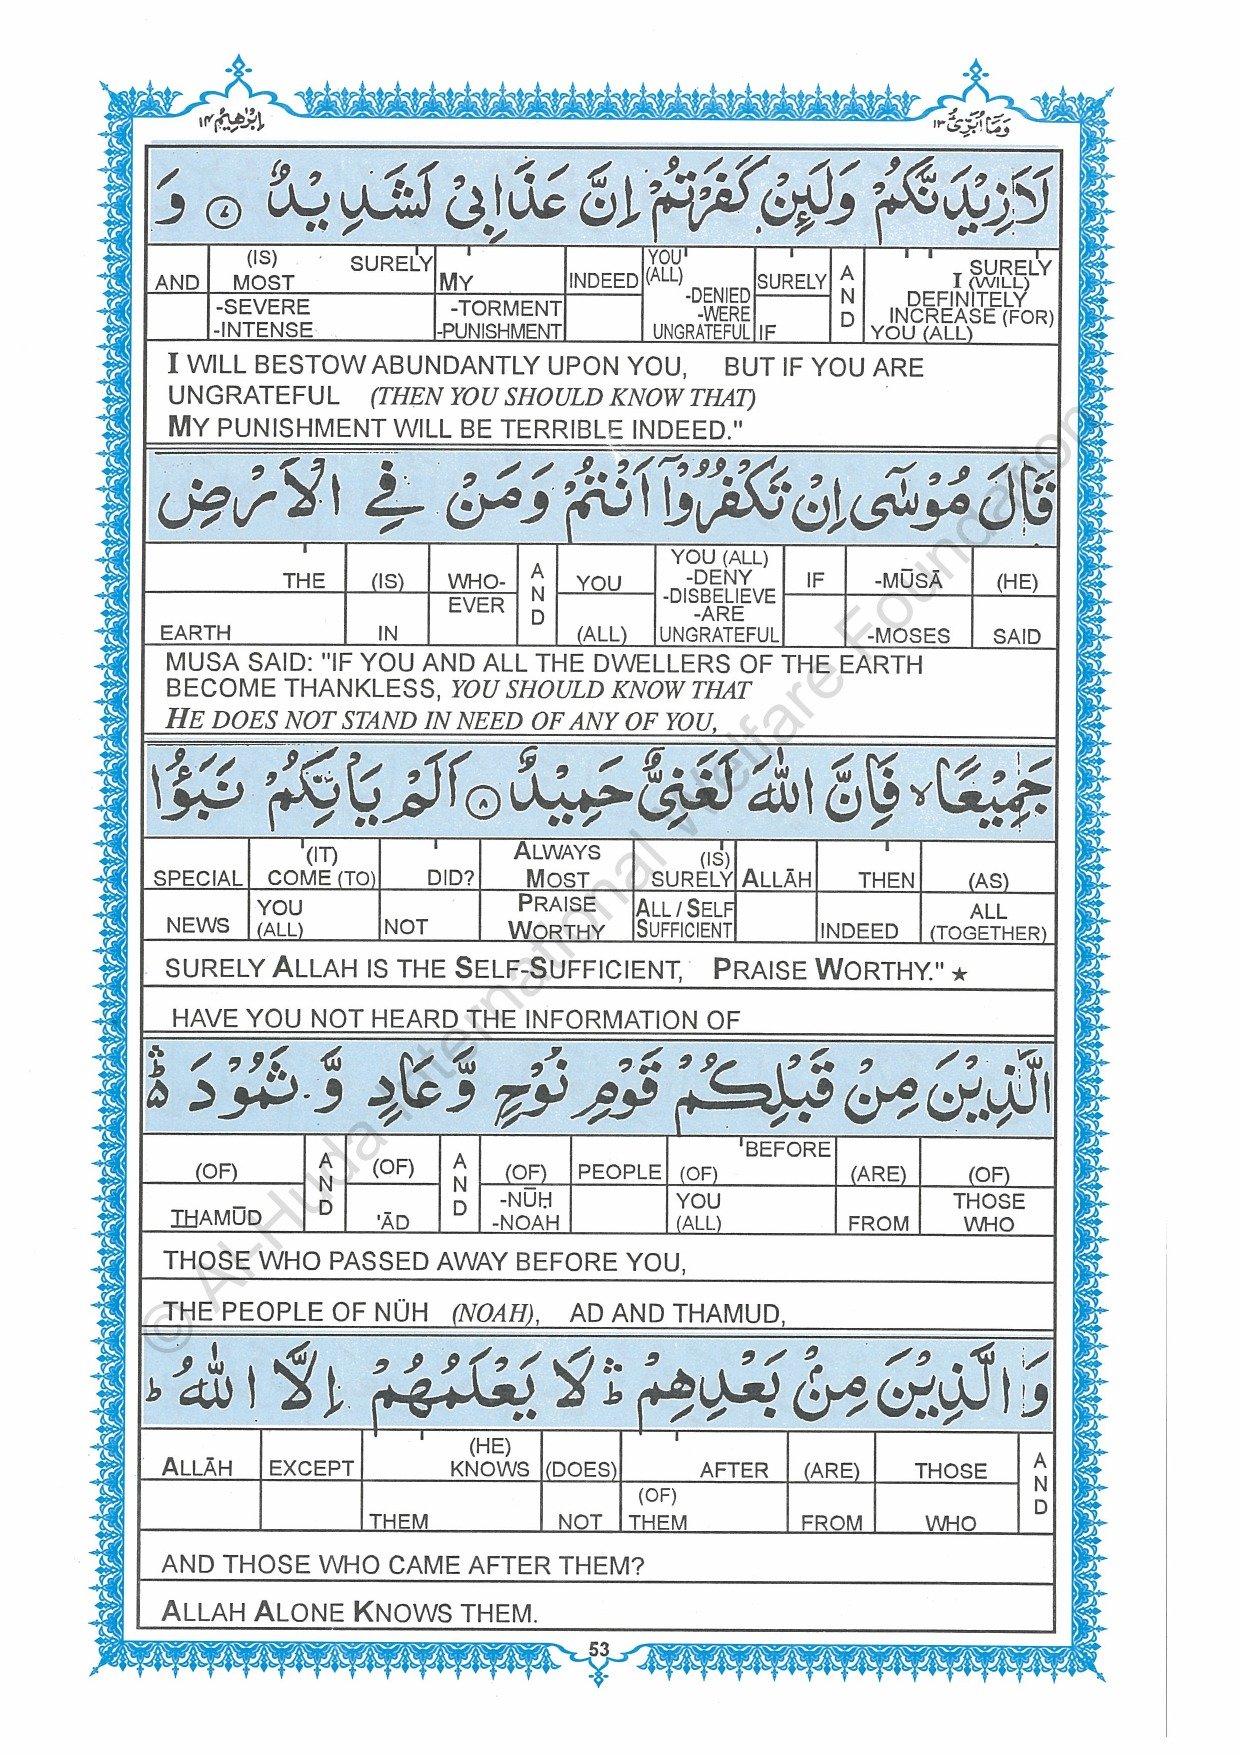 اِبْرٰهِيْمُ ١٤
وَمَآ اُبَرِّئُ ١٣
لَاَزِيْدَنَّكُمْ وَلَئِنْ كَفَرْتُمْ اِنَّ عَذَابِىْ لَشَدِيْدٌ ۝٧ وَ
AND (IS) MOST -SEVERE -INTENSE SURELY MY -TORMENT -PUNISHMENT INDEED YOU (ALL) -DENIED -WERE UNGRATEFUL SURELY IF AND SURELY I (WILL) DEFINITELY INCREASE (FOR) YOU (ALL)
I WILL BESTOW ABUNDANTLY UPON YOU, BUT IF YOU ARE
UNGRATEFUL (THEN YOU SHOULD KNOW THAT)
MY PUNISHMENT WILL BE TERRIBLE INDEED."
قَالَ مُوْسٰٓى اِنْ تَكْفُرُوْٓا اَنْتُمْ وَمَنْ فِى الْاَرْضِ
THE EARTH (IS) IN WHO-EVER AND YOU (ALL) YOU (ALL) -DENY -DISBELIEVE -ARE UNGRATEFUL IF -MŪSĀ -MOSES (HE) SAID
MUSA SAID: "IF YOU AND ALL THE DWELLERS OF THE EARTH
BECOME THANKLESS, YOU SHOULD KNOW THAT
HE DOES NOT STAND IN NEED OF ANY OF YOU,
جَمِيْعًا ۙ فَاِنَّ اللّٰهَ لَغَنِىٌّ حَمِيْدٌ ۝٨ اَلَمْ يَاْتِكُمْ نَبَؤُا
SPECIAL NEWS (IT) COME (TO) YOU (ALL) DID? NOT ALWAYS MOST PRAISE WORTHY (IS) SURELY ALL / SELF SUFFICIENT ALLĀH THEN INDEED (AS) ALL (TOGETHER)
SURELY ALLAH IS THE SELF-SUFFICIENT, PRAISE WORTHY." ★
HAVE YOU NOT HEARD THE INFORMATION OF
الَّذِيْنَ مِنْ قَبْلِكُمْ قَوْمِ نُوْحٍ وَّعَادٍ وَّ ثَمُوْدَ ۛ
(OF) THAMŪD AND (OF) 'ĀD AND (OF) -NŪḤ -NOAH PEOPLE BEFORE (OF) YOU (ALL) (ARE) FROM (OF) THOSE WHO
THOSE WHO PASSED AWAY BEFORE YOU,
THE PEOPLE OF NÜH (NOAH), AD AND THAMUD,
وَ الَّذِيْنَ مِنْۢ بَعْدِهِمْ ۛ لَا يَعْلَمُهُمْ اِلَّا اللّٰهُ ۭ
ALLĀH EXCEPT (HE) KNOWS THEM (DOES) NOT AFTER (OF) THEM (ARE) FROM THOSE WHO AND
AND THOSE WHO CAME AFTER THEM?
ALLAH ALONE KNOWS THEM.
53
© Al-Huda International Welfare Foundation